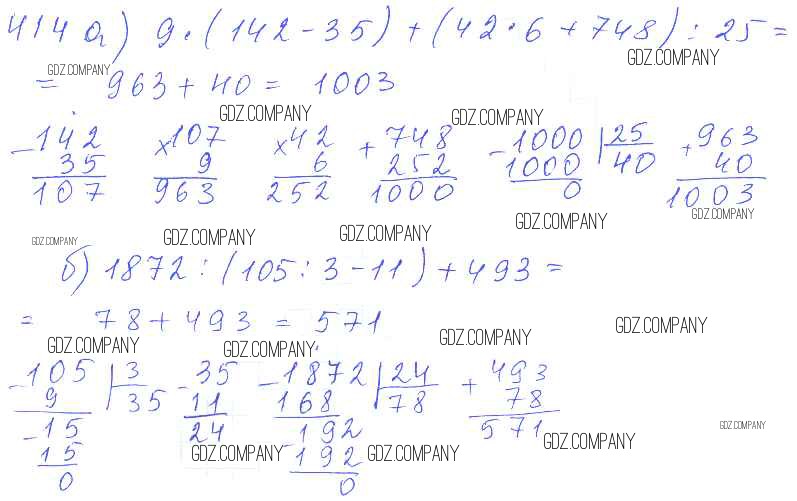 414 а) 9·(142-35)+(42·6+748):25=
GDZ.COMPANY
= 963+40= 1003
GDZ.COMPANY
GDZ.COMPANY GDZ.COMPANY
-142 ×107 ×42 +748 -1000 |25 +963
35 9 6 252 1000 40 40
107 963 252 1000 0 1003
GDZ.COMPANY GDZ.COMPANY
GDZ.COMPANY GDZ.COMPANY GDZ.COMPANY
б) 1872:(105:3-11)+493=
= 78+493=571
GDZ.COMPANY GDZ.COMPANY
GDZ.COMPANY GDZ.COMPANY
-105 |3 -35 -1872 |24 +493
9 35 11 168 78 78
-15 24 -192 571
GDZ.COMPANY GDZ.COMPANY
15 192
GDZ.COMPANY GDZ.COMPANY
0 0